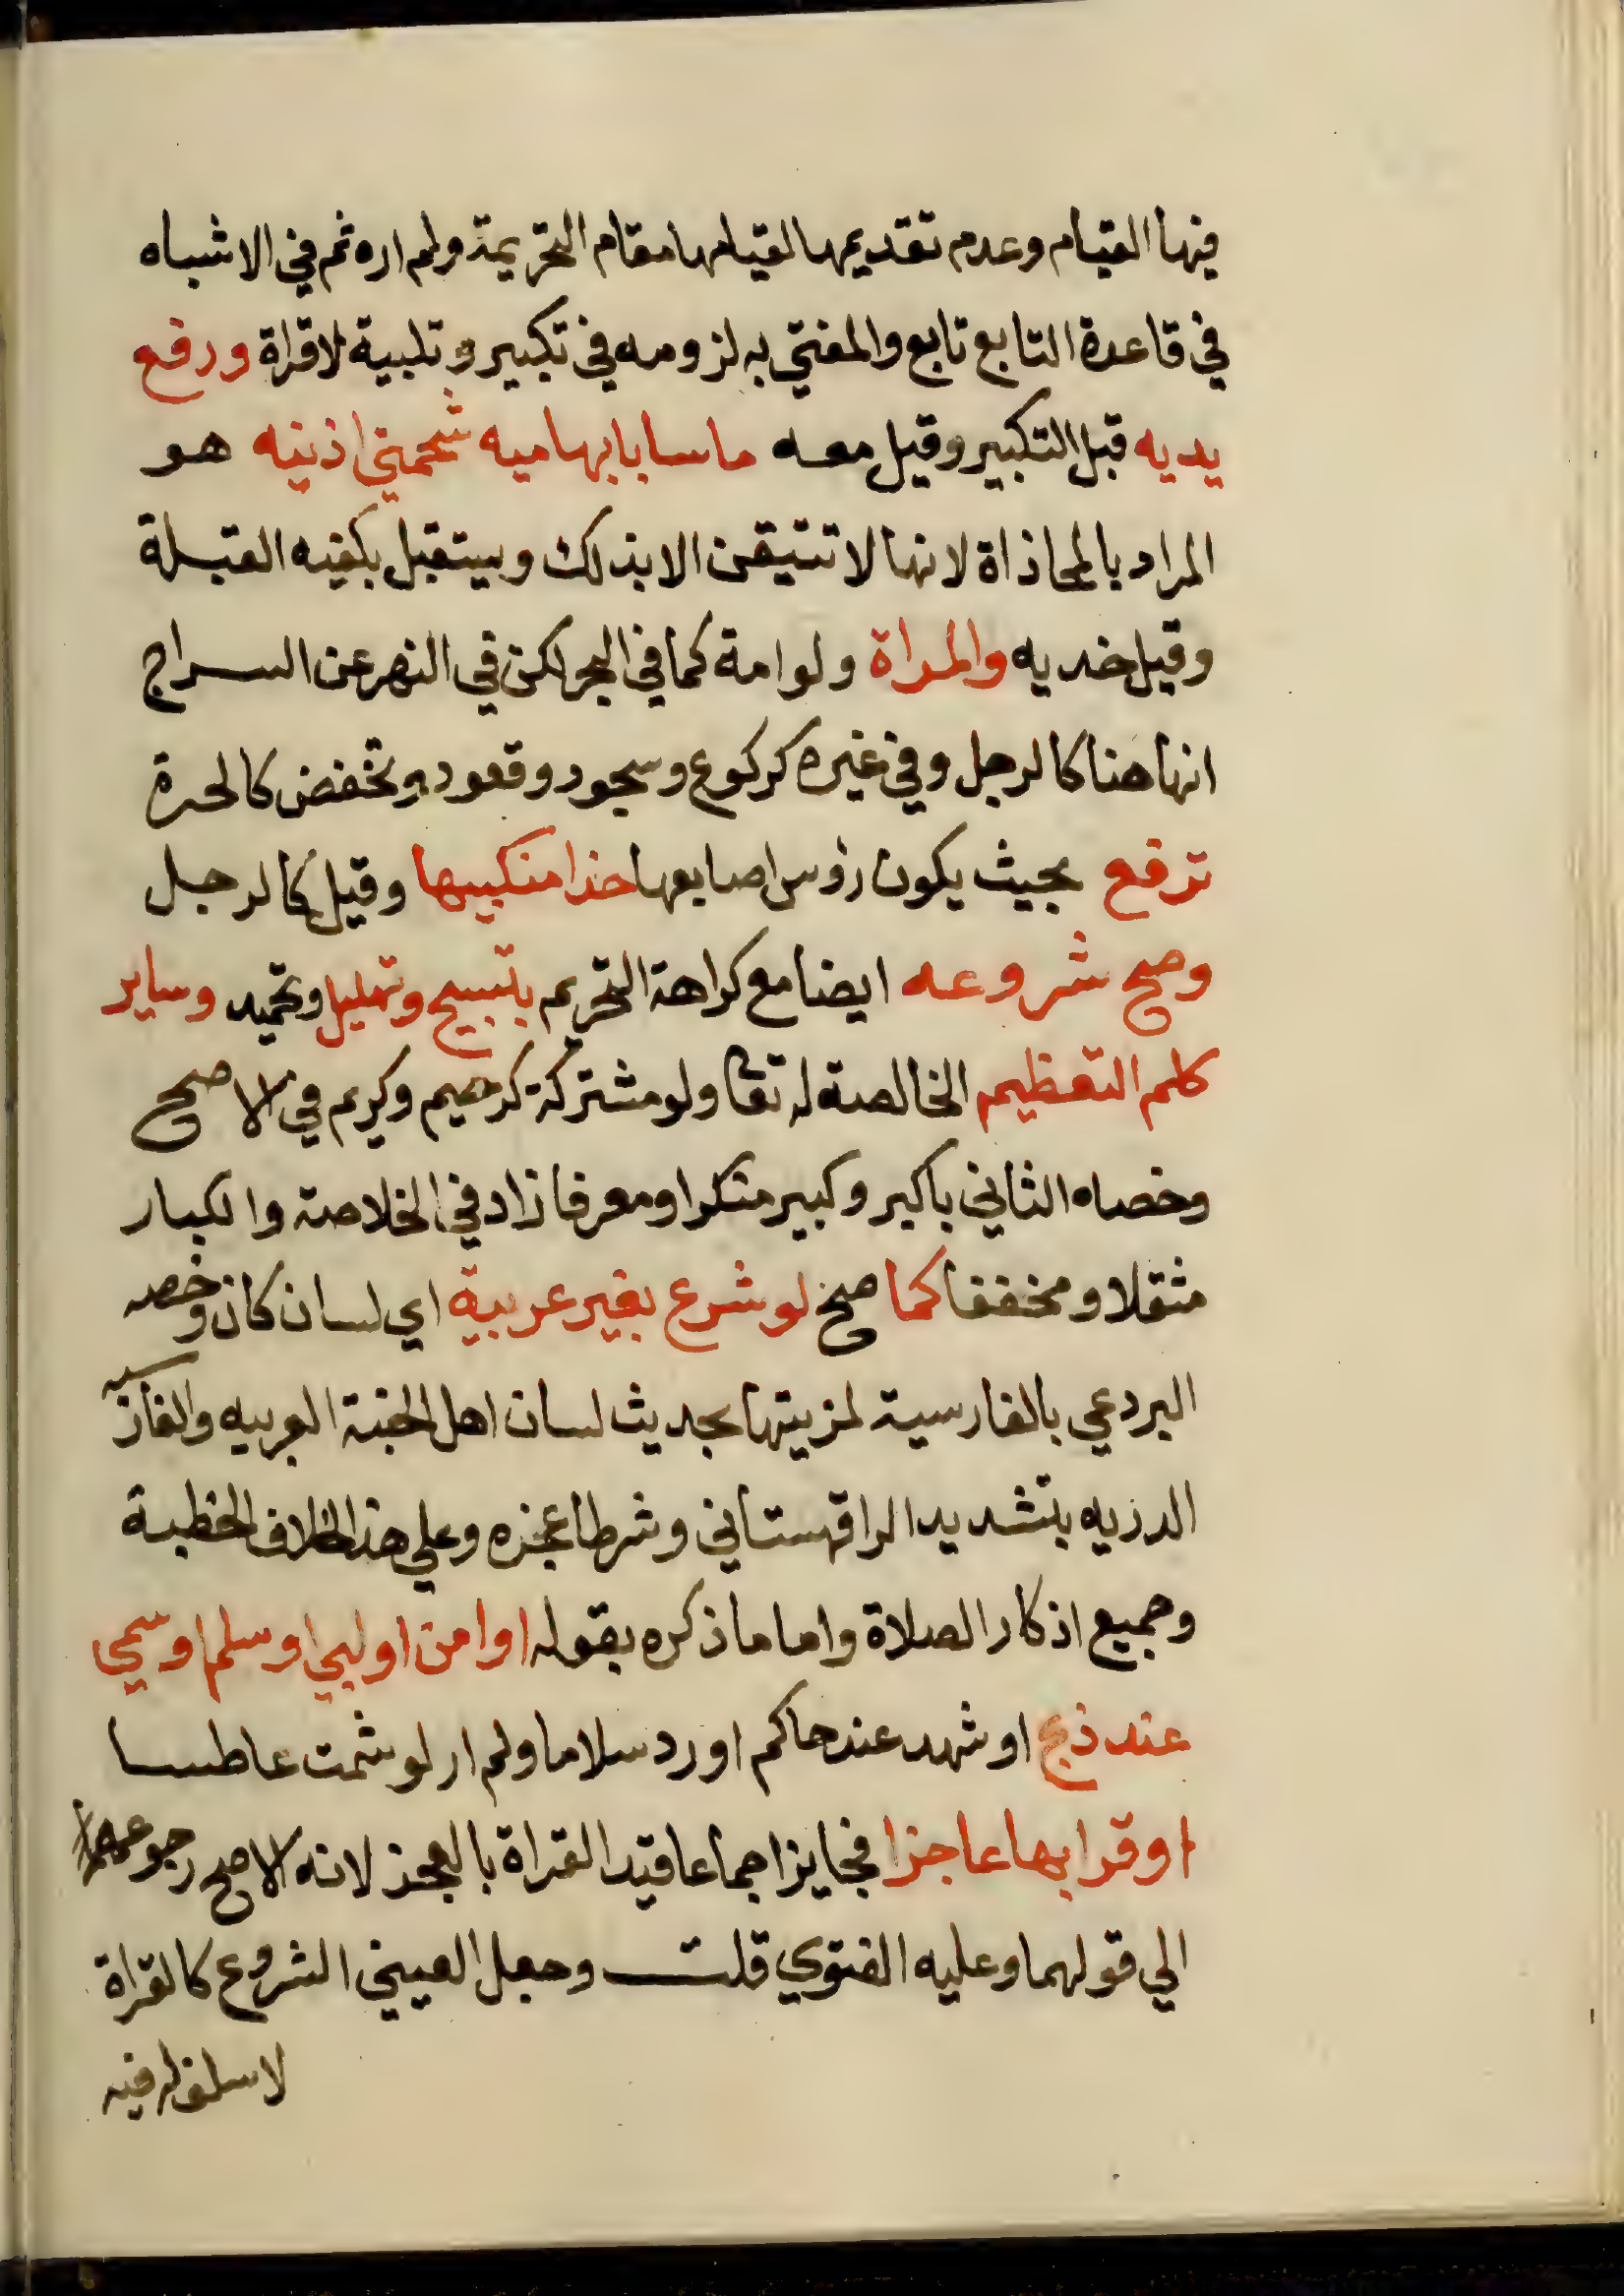 فيها القيام وعدم تقديمها لقيامها مقام التحريمة ولم اره ثم في الاشباه
في قاعدة التابع تابع والمفتي به لزومه في تكبير وتلبية لا قراة ورفع
يديه قبل التكبير وقيل معه ماسا بابهاميه شحمتي اذنيه هو
المراد بالمحاذاة لانها لا تتيقن الا بذلك ويستقبل بكفيه القبلة
وقيل خديه والمراة ولو امة كما في البحر لكن في النهر عن السراج
انها هنا كالرجل وفي غيره كركوع وسجود وقعود وتخفض كالحرة
ترفع بحيث يكون رؤس اصابعها حذا منكبيها وقيل كالرجل
وصح شروعه ايضا مع كراهة التحريم بتسبيح وتهليل وتحميد وساير
كلم التعظيم الخالصة له تعا ولو مشتركة كرحيم وكريم في الاصح
وخصاه الثاني باكبر وكبير منكرا ومعرفا زاد في الخلاصة والكبار
مثقلا ومخففا كما صح لو شرع بغير عربية اي لسان كان وخصه
البردعي بالفارسية لمزيتها بحديث لسان اهل الجنة العربيه والفارسيه
الدريه بتشديد الرا قهستاني وشرطا عجزه وعلي هذا الخلاف الخطبة
وجميع اذكار الصلاة واما ما ذكره بقوله او امن او لبي او سلم او سمي
عند ذبح او شهد عند حاكم او رد سلاما ولم ار لو شمت عاطسا
او قرا بها عاجزا فجايز اجماعا قيد القراة بالعجز لانه الاصح رجوعه
الي قولهما وعليه الفتوي قلت وجعل العيني الشروع كالقراة
لا سلف له فيه